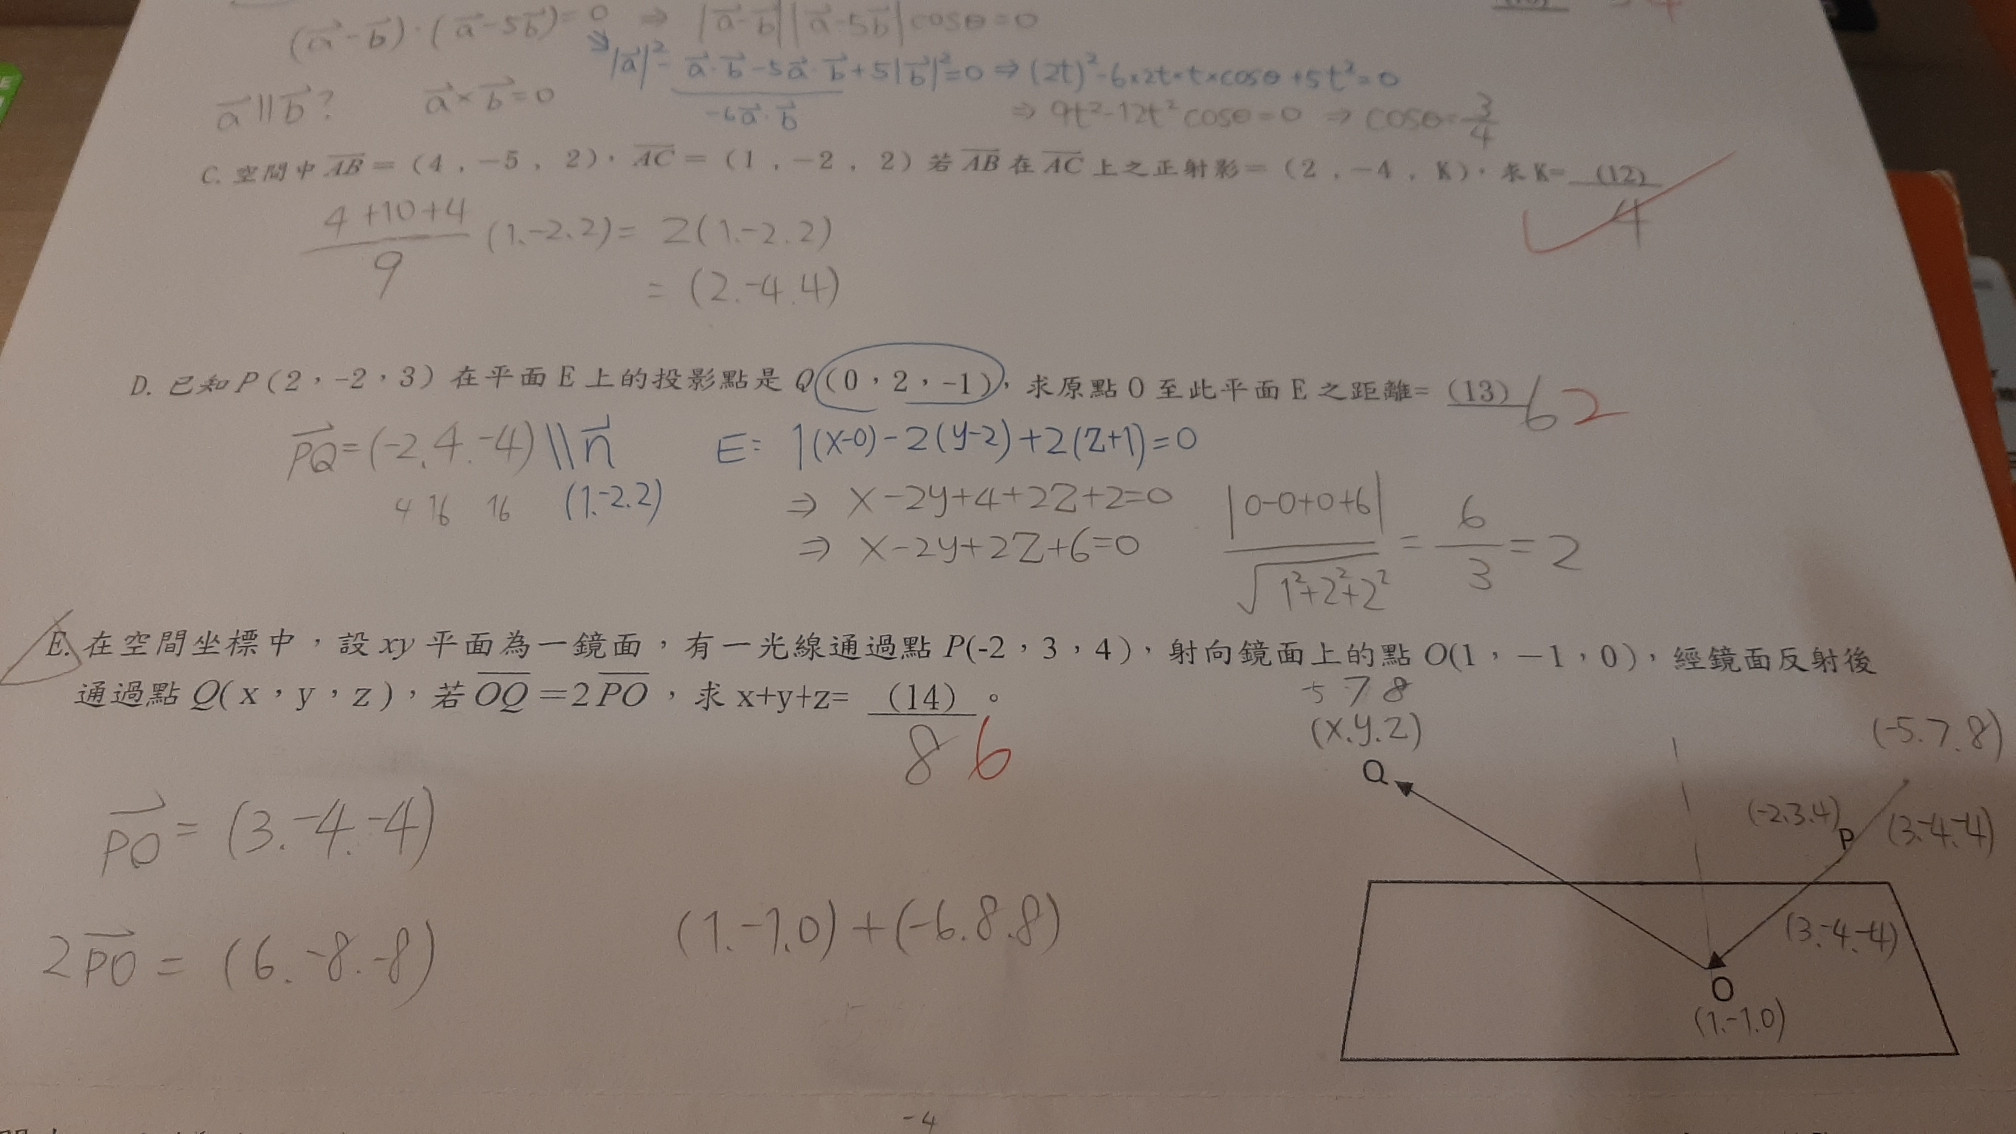 (a⃗-b⃗)·(a⃗-5b⃗)=0 ⇒ |a⃗-b⃗||a⃗-5b⃗|cosθ=0
|a⃗|²-a⃗·b⃗-5a⃗·b⃗+5|b⃗|²=0 ⇒ (2t)²-6×2t×t×cosθ+5t²=0
-6a⃗·b⃗
a⃗∥b⃗? a⃗×b⃗=0
⇒ 9t²-12t²cosθ=0 ⇒ cosθ=3/4
C. 空間中 AB=(4,-5,2),AC=(1,-2,2)若 AB 在 AC 上之正射影=(2,-4,K),求K= (12)
4
4+10+4/9 (1.-2.2)= 2(1.-2.2)
= (2.-4.4)
D. 已知 P(2,-2,3)在平面 E 上的投影點是 Q(0,2,-1),求原點 O 至此平面 E 之距離= (13)
6 2
PQ⃗=(-2.4.-4) \\ n⃗ E: 1(x-0)-2(y-2)+2(z+1)=0
4 16 16 (1.-2.2)
⇒ x-2y+4+2z+2=0
⇒ x-2y+2z+6=0
|0-0+0+6|/√1²+2²+2² = 6/3 = 2
E. 在空間坐標中,設 xy 平面為一鏡面,有一光線通過點 P(-2,3,4),射向鏡面上的點 O(1,-1,0),經鏡面反射後
通過點 Q(x,y,z),若 OQ=2PO,求 x+y+z= (14)。
8 6
-5 7 8
(x.y.z)
Q
(-5.7.8)
(-2.3.4)
P
(3.-4.-4)
PO⃗=(3.-4.-4)
2PO⃗=(6.-8.-8)
(1.-1.0)+(-6.8.8)
(3.-4.-4)
O
(1.-1.0)
-4